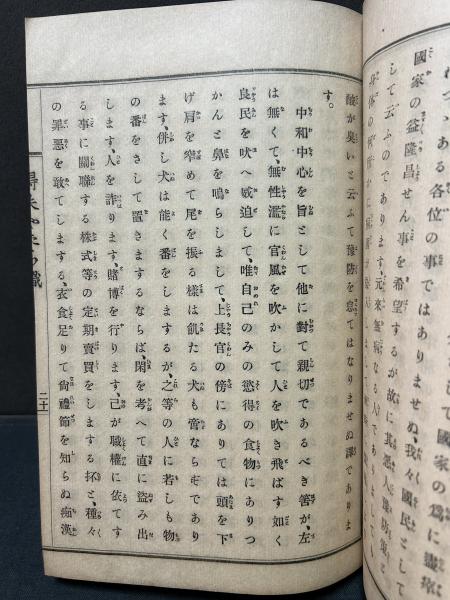 國家の益隆昌せん事を希望するが故に其惡人豫防策と
して云ふのであります、元來無病なる人
酸が臭いと云ふて豫防を怠てはなりませぬ譯でありま
す。
中和中心を旨として他に對て親切であるべき筈が、左
は無くて、無性濫に官風を吹かして人を吹き飛ばす如く
良民を吠へ威迫して、唯自己のみの慾得の食物にありつ
かんと鼻を鳴らしまして、上長官の傍にありては頭を下
げ肩を窄めて尾を振る樣は飢たる犬も啻ならずであり
ます、併し犬は能く番をしまするが、之等の人に若しも物
の番をさして置きまするならば、閑を考へて直に盜み出
します、人を詐ります、賭博を行ります、己が職權に依てす
る事に關聯する株式等の定期賣買をしまする抔と、種々
の罪惡を敢てしまする、衣食足りて尙禮節を知らぬ痴漢
二十